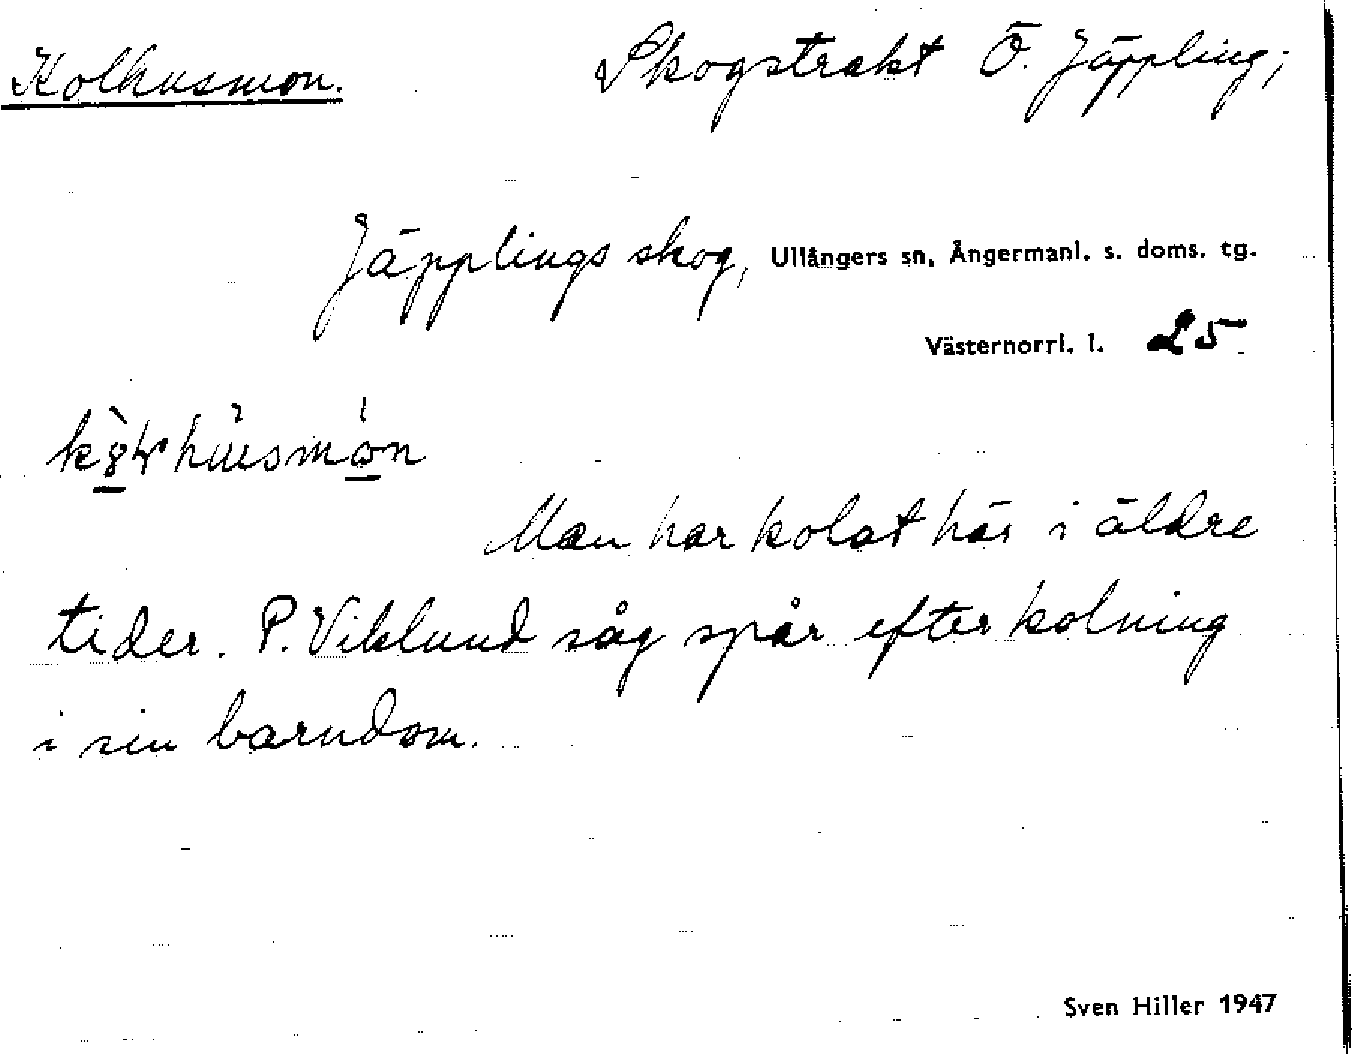 Kolhusmon. Skogstrakt Ö. Jäppling;
Jäpplings skog, Ullångers sn, Ångermanl. s. doms. tg.
Västernorrl. l. 25
Man har kolat här i äldre
tider. P. Viklund såg spår efter kolning
i sin barndom.
Sven Hiller 1947